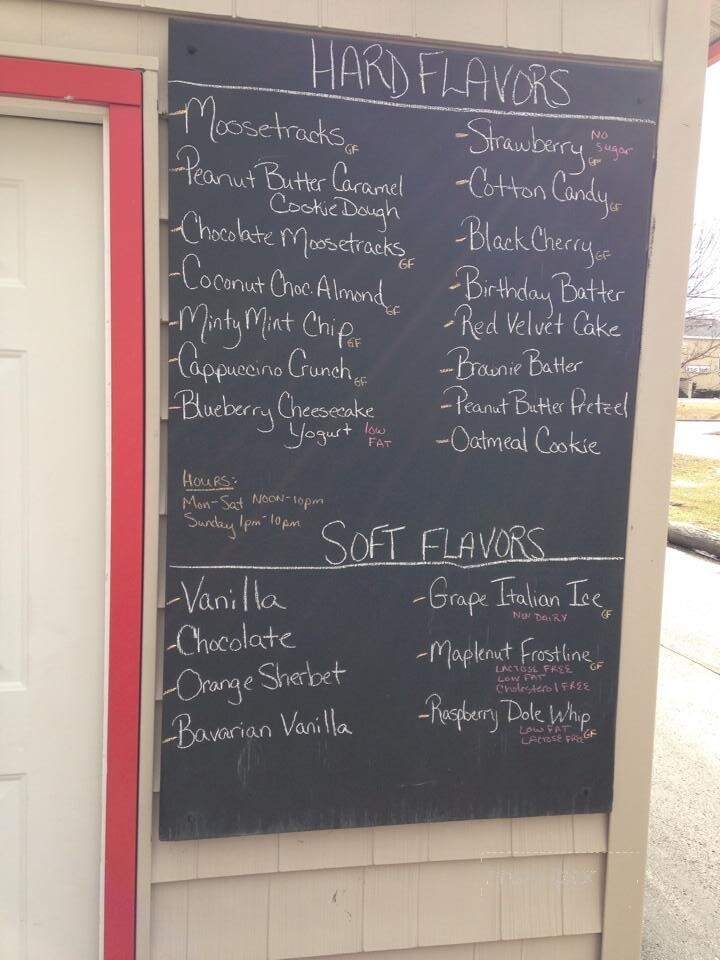 HARD FLAVORS
- Moosetracks GF
- Peanut Butter Caramel
Cookie Dough
- Chocolate Moosetracks GF
- Coconut Choc. Almond GF
- Minty Mint Chip GF
- Cappuccino Crunch GF
- Blueberry Cheesecake
Yogurt low
FAT
- Strawberry GF No
Sugar
- Cotton Candy GF
- Black Cherry GF
- Birthday Batter
- Red Velvet Cake
- Brownie Batter
- Peanut Butter Pretzel
- Oatmeal Cookie
HOURS:
Mon-Sat NOON-10pm
Sunday 1pm-10pm
SOFT FLAVORS
- Vanilla
- Chocolate
- Orange Sherbet
- Bavarian Vanilla
- Grape Italian Ice GF
NON DAIRY
- Maplenut Frostline GF
LACTOSE FREE
LOW FAT
Cholesterol FREE
- Raspberry Dole Whip GF
LOW FAT
LACTOSE FREE